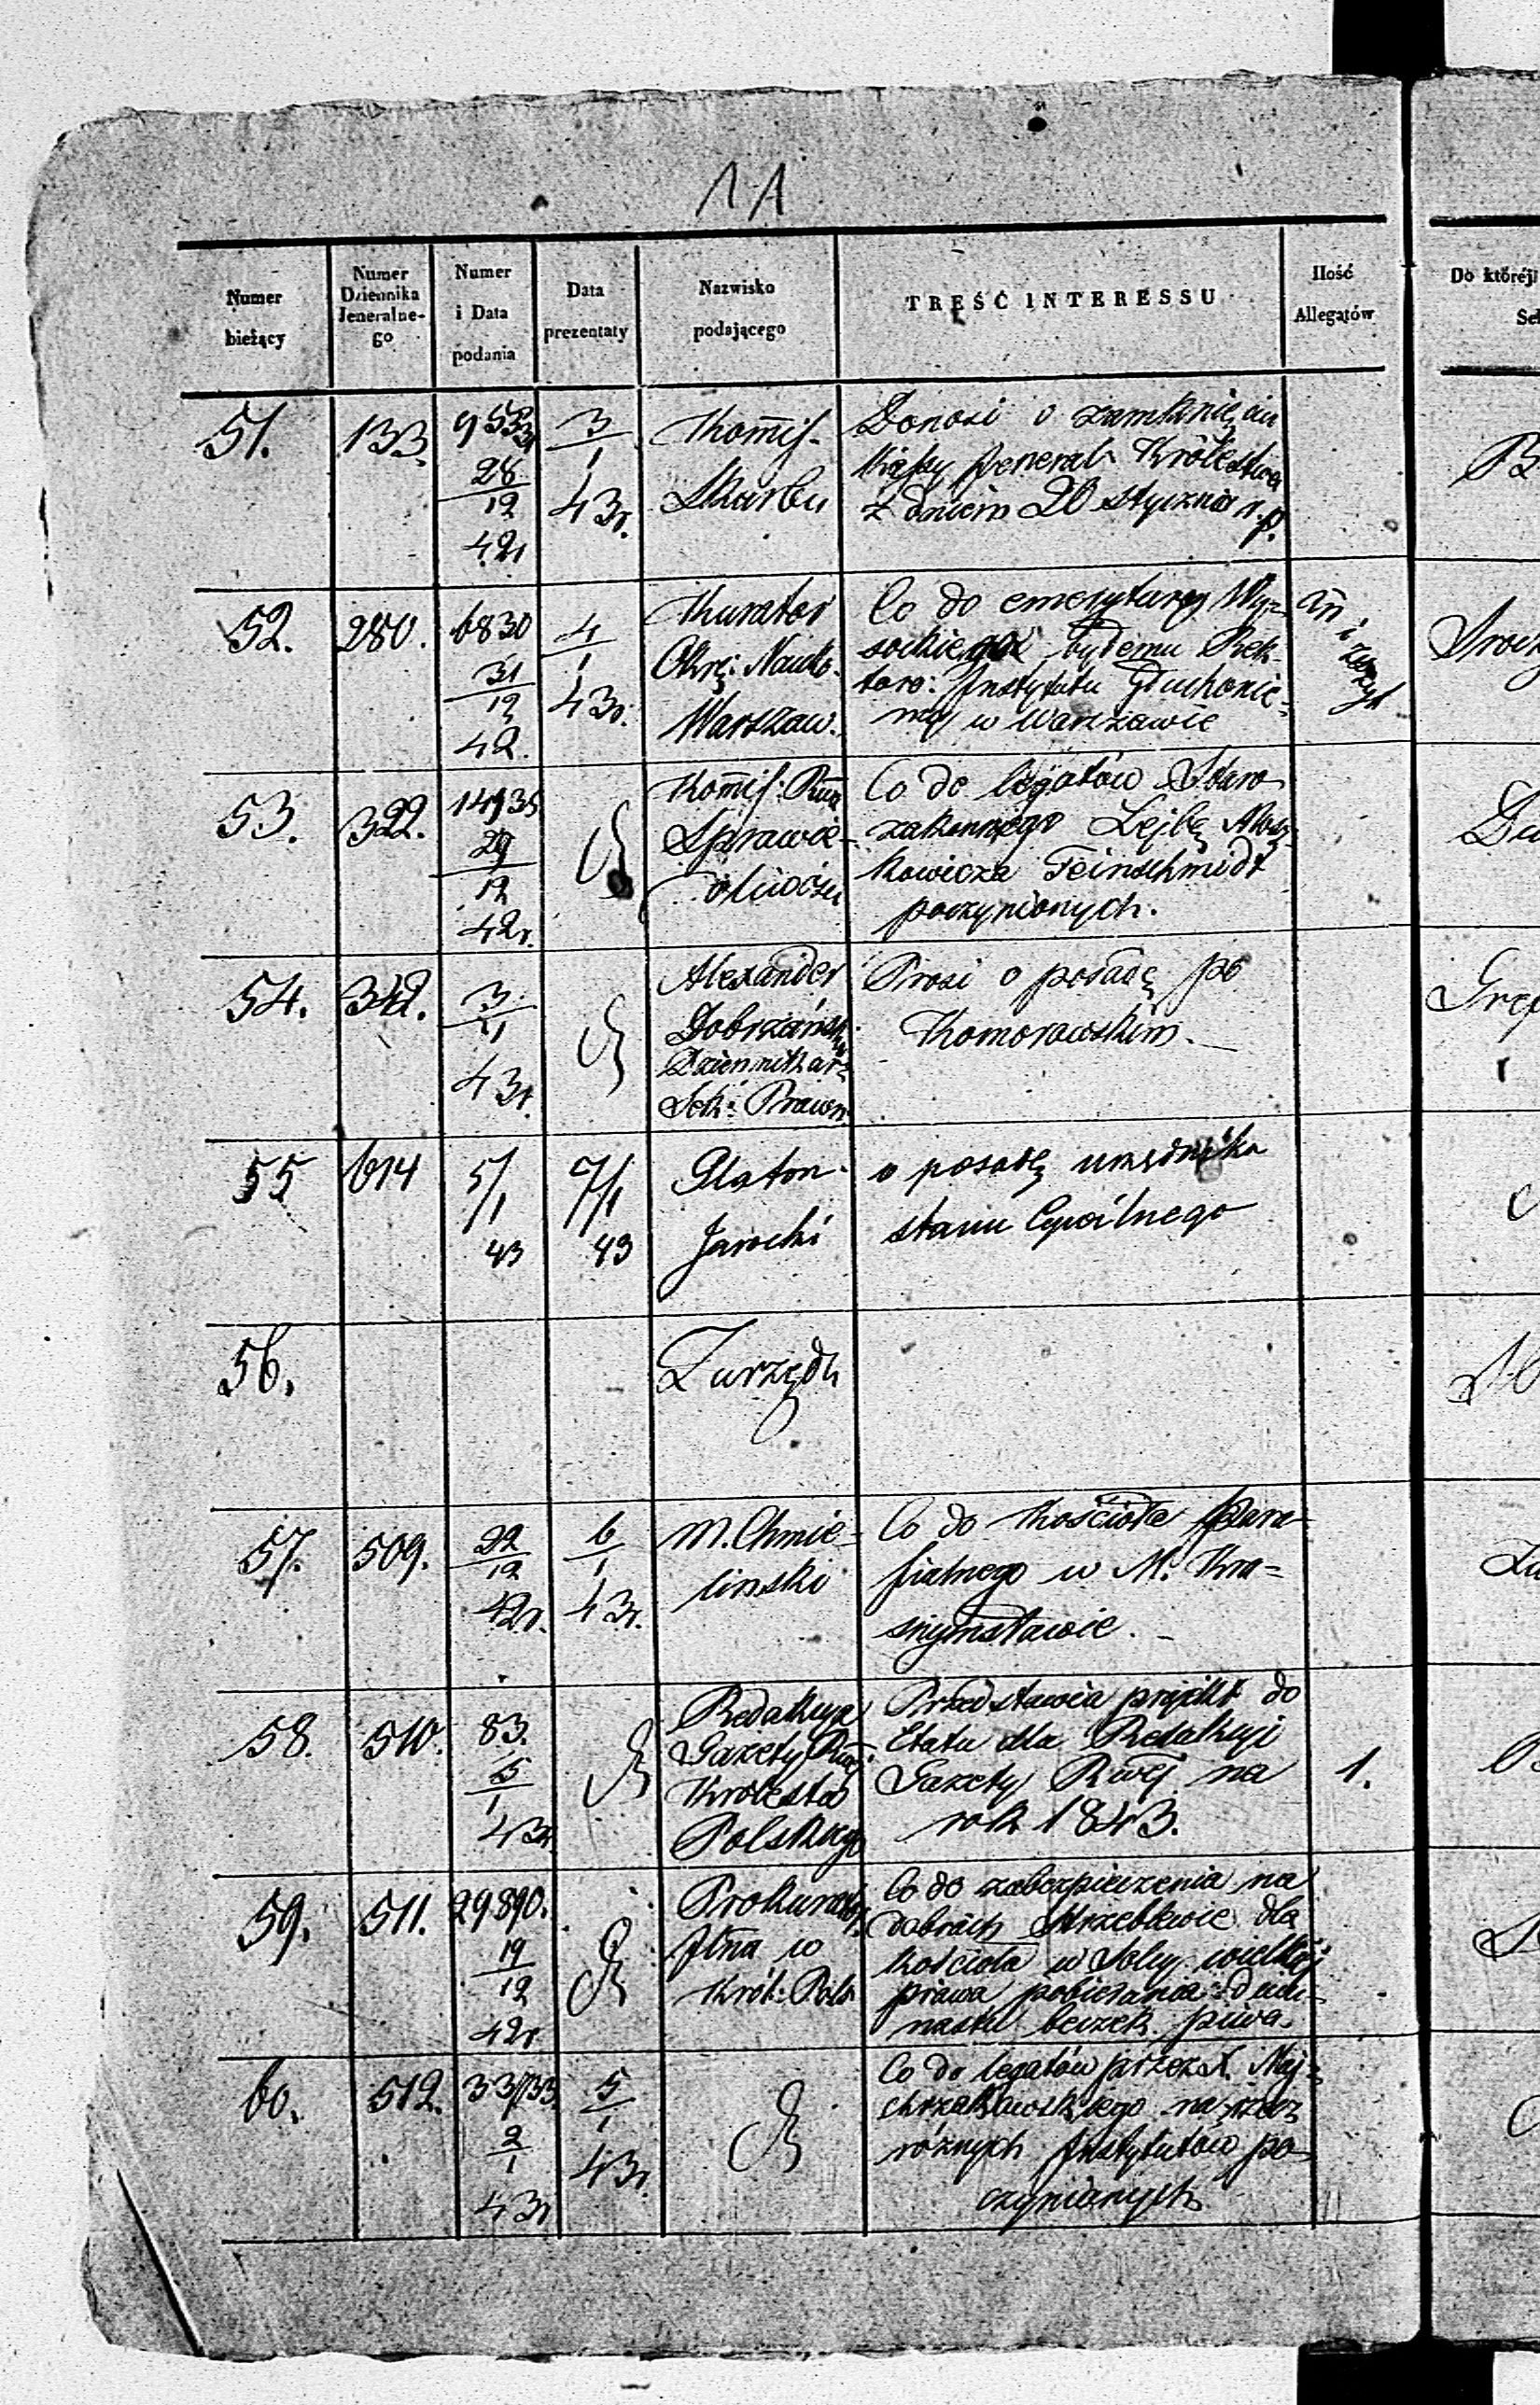 1A
Numer bieżący
Numer Dziennika Jeneralne-go
Numer i Data podania
Data prezentaty
Nazwisko podającego
TREŚĆ INTERESSU
Ilość Allegatów
Do któréj
51.
133.
28
12
42r
3
1
43r.
Komiſ.
Skarbu
Donosi o zamknięciu
Kaſsy Jeneral. Królestwa
z dniem 20 stycznia r. p.
52.
280.
6830
31
12
42.
4
1
43r.
Kurator
Okrę: Nauko.
Warszaw.
Co do emerytury Wy-
sockiego byłemu Rek-
toro: Instytutu Głuchonie-
my w Warszawie
53.
322.
14935
29
12
42r.
Komiſ: Rząd
Sprawie-
dliwości
Co do legatów Staro
zakonnego Lejbę
kowicza Feinschmidt
poczynionych.
54.
342.
3
1
43r.
Alexander
Dobrzański
Dziennikarz
Sek: Prawn.
Prosi o posadę po
Komorowskim.
55
614
5/1
43
7/1
43
Platon
Jarocki
o posadę urzędnika
stanu Cywilnego
56.
Z urzędu
57.
509.
22
12
42r.
6
1
43r.
M. Chmie-
linski
Co do Kościoła Para-
fialnego w M. Kra-
snymstawie.
58.
510.
83.
5
1
43r.
Redakcya
Gazety Rząd:
Królestwa
Polskiego
Przedstawia projekt do
Etatu dla Redakcyi
Gazety Rwéj na
rok 1843.
1.
59.
511.
29890.
19
12
42r
Prokurator
Jlna w
Król: Pols
Co do zabezpieczenia na
dobrach dla
kościoła w wielkiéj
prawa pobierania dwu-
nastu beczek piwa.
60.
512.
33733.
2
1
43r
5
1
43r.
Co do legatów przez X. Maj-
na rzecz
różnych Instytutów po-
czynionych